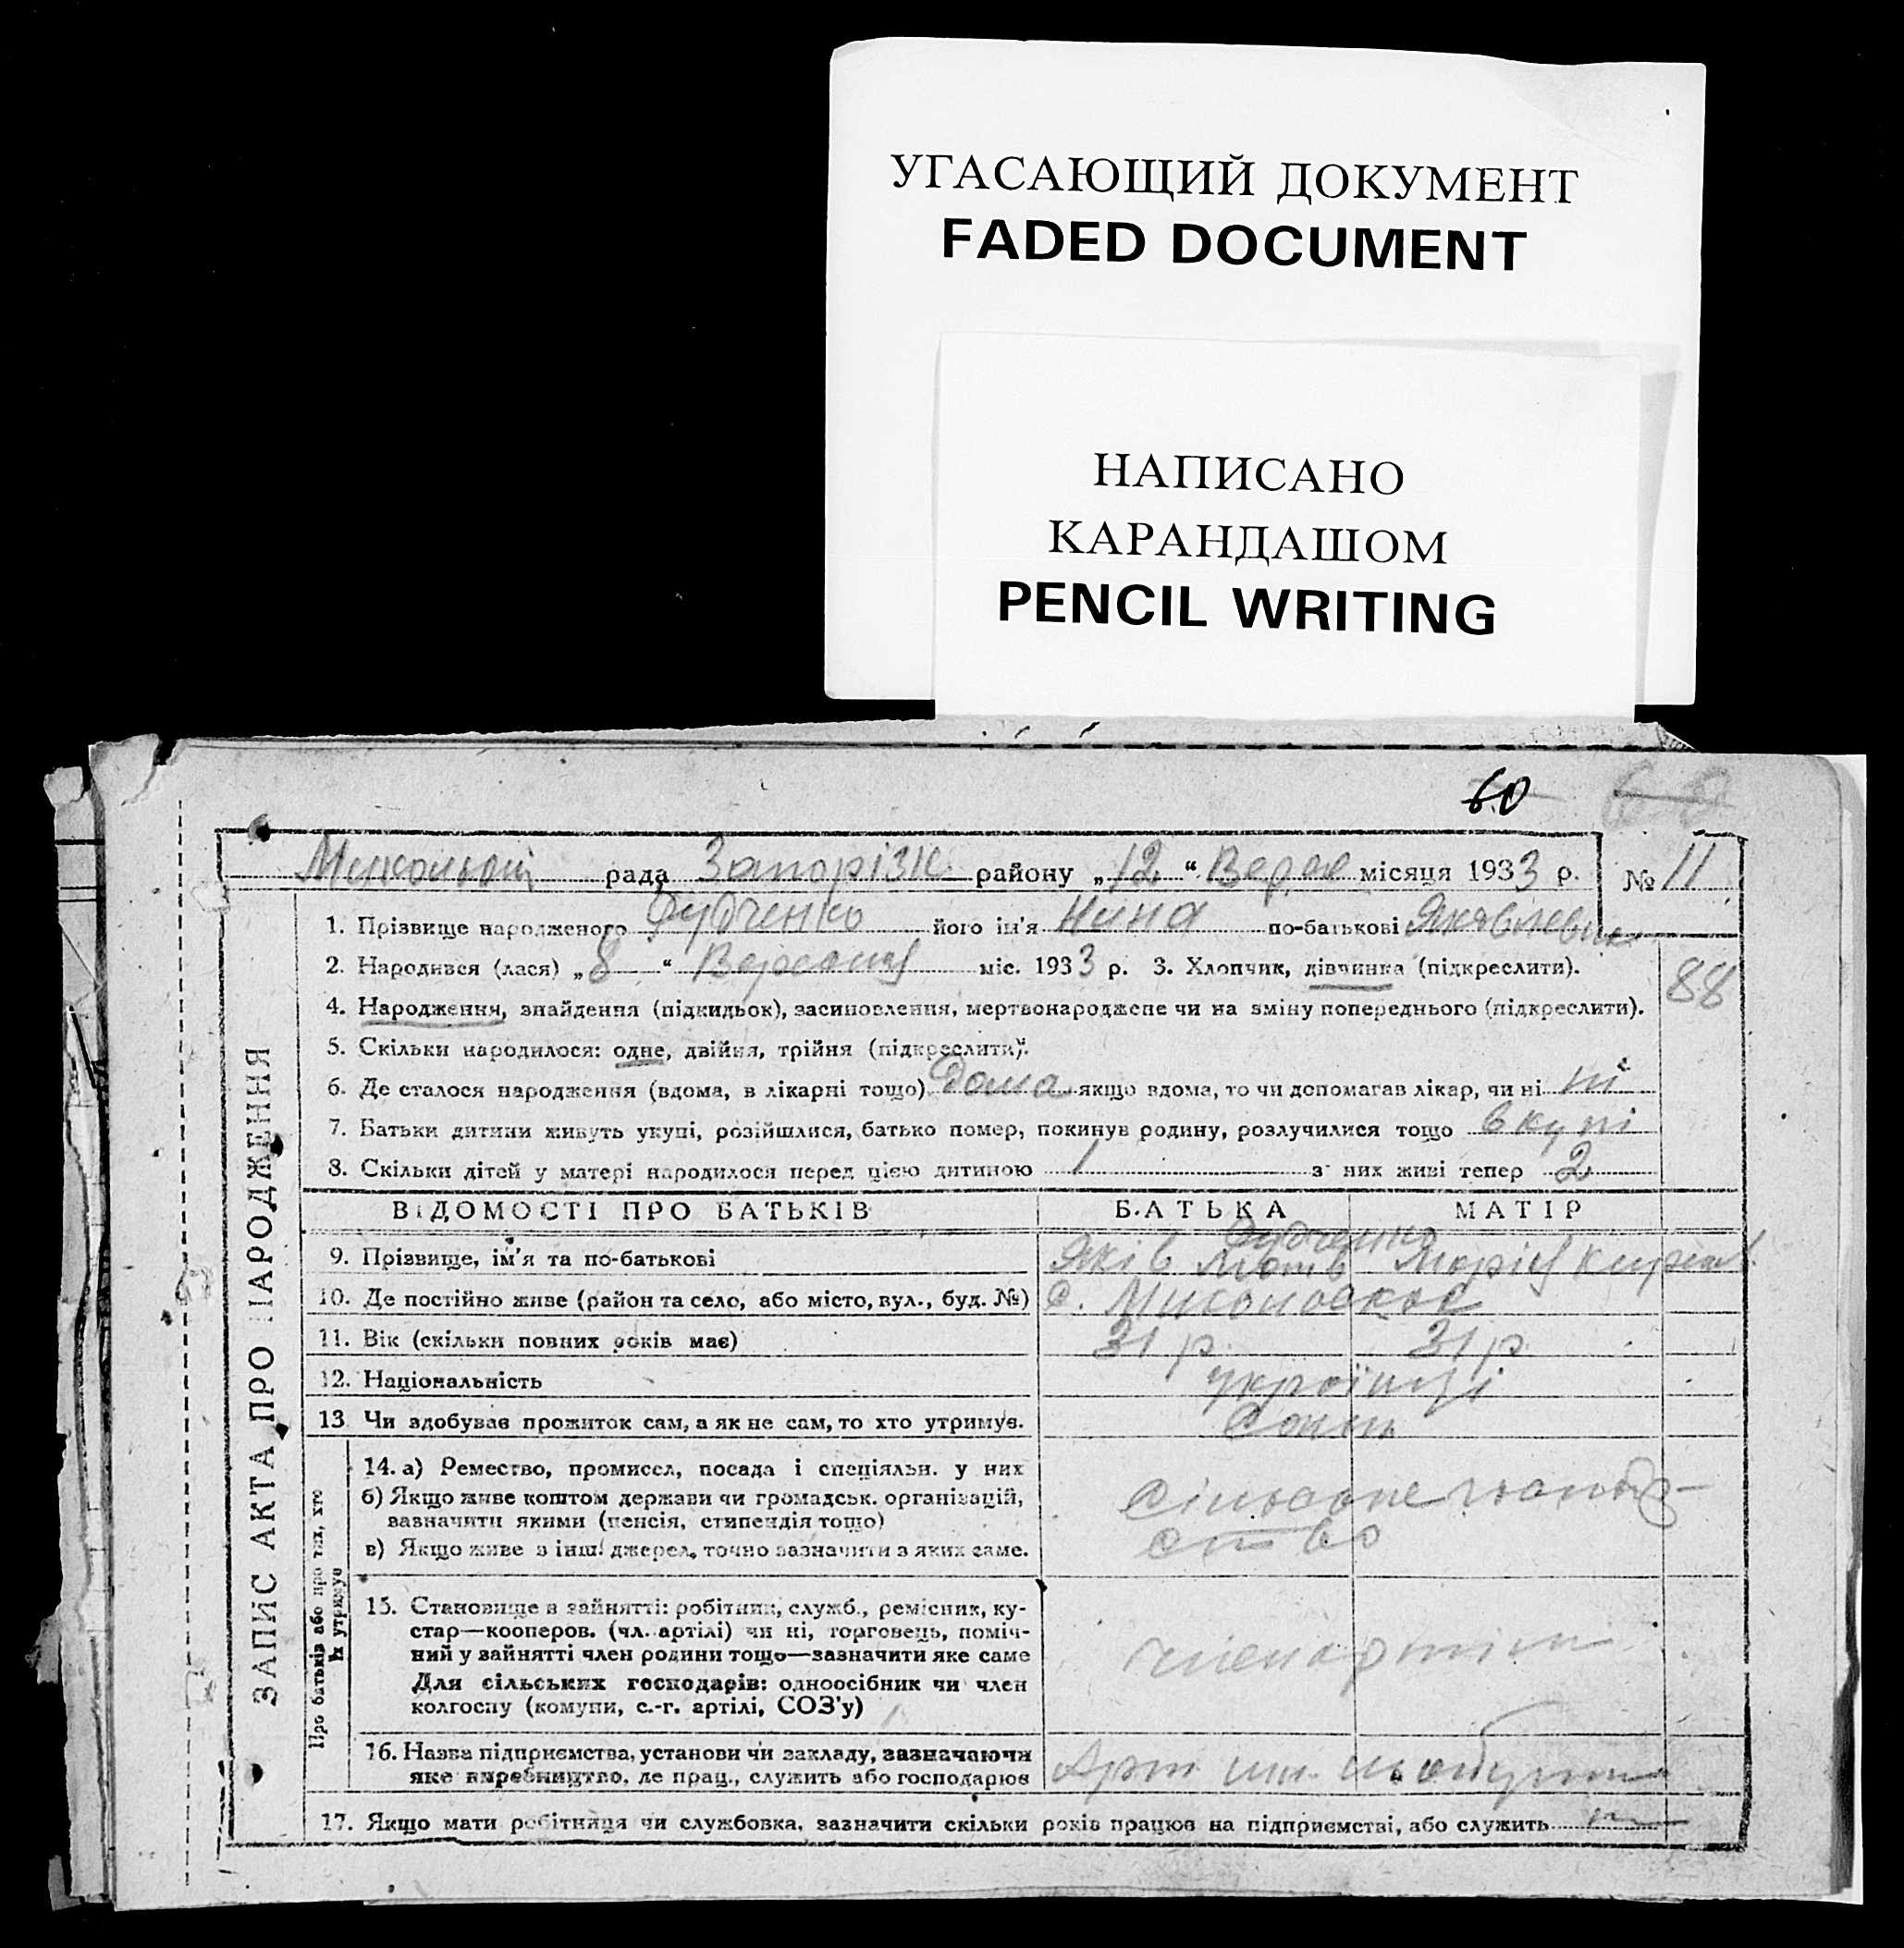 УГАСАЮЩИЙ ДОКУМЕНТ
FADED DOCUMENT
НАПИСАНО
КАРАНДАШОМ
PENCIL WRITING
60
рада Запорізк. району „12“ Верес місяця 1933 р. № 11
1. Прізвище народженого Дудченко його ім'я Нина по-батькові Яковлевна
2. Народився (лася) „8“ Вересня міс. 1933 р. 3. Хлопчик, дівчинка (підкреслити).
88
4. Народження, знайдення (підкидьок), засиновлення, мертвонароджене чи на зміну попереднього (підкреслити).
5. Скільки народилося: одне, двійня, трійня (підкреслити).
6. Де сталося народження (вдома, в лікарні тощо) дома якщо вдома, то чи допомагав лікар, чи ні ні
7. Батьки дитини живуть укупі, розійшлися, батько помер, покинув родину, розлучилися тощо вкупі
8. Скільки дітей у матері народилося перед цією дитиною 1 з них живі тепер 2
ВІДОМОСТІ ПРО БАТЬКІВ БАТЬКА МАТІР
Дудченко
9. Прізвище, ім'я та по-батькові Яків Матв Марія
10. Де постійно живе (район та село, або місто, вул., буд. №) с.
11. Вік (скільки повних років має) 31 р. 31 р.
12. Національність українці
13. Чи здобував прожиток сам, а як не сам, то хто утримує.
14. а) Ремество, промисел, посада і спеціяльн. у них
б) Якщо живе коштом держави чи громадськ. організацій,
зазначити якими (пенсія, стипендія тощо)
в) Якщо живе з інш. джерел, точно зазначити з яких саме.
15. Становище в зайнятті: робітник, служб., ремісник, ку-
стар—кооперов. (чл. артілі) чи ні, торговець, поміч-
ний у зайнятті член родини тощо—зазначити яке саме
Для сільських господарів: одноосібник чи член
колгоспу (комуни, с.-г. артілі, СОЗ'у)
член артілі
16. Назва підприємства, установи чи закладу, зазначаючи
яке виробництво, де прац., служить або господарює
Арт. ім.
17. Якщо мати робітниця чи службовка, зазначити скільки років працює на підприємстві, або служить
ЗАПИС АКТА ПРО НАРОДЖЕННЯ
Про батьків або про тих, хто
їх утримує